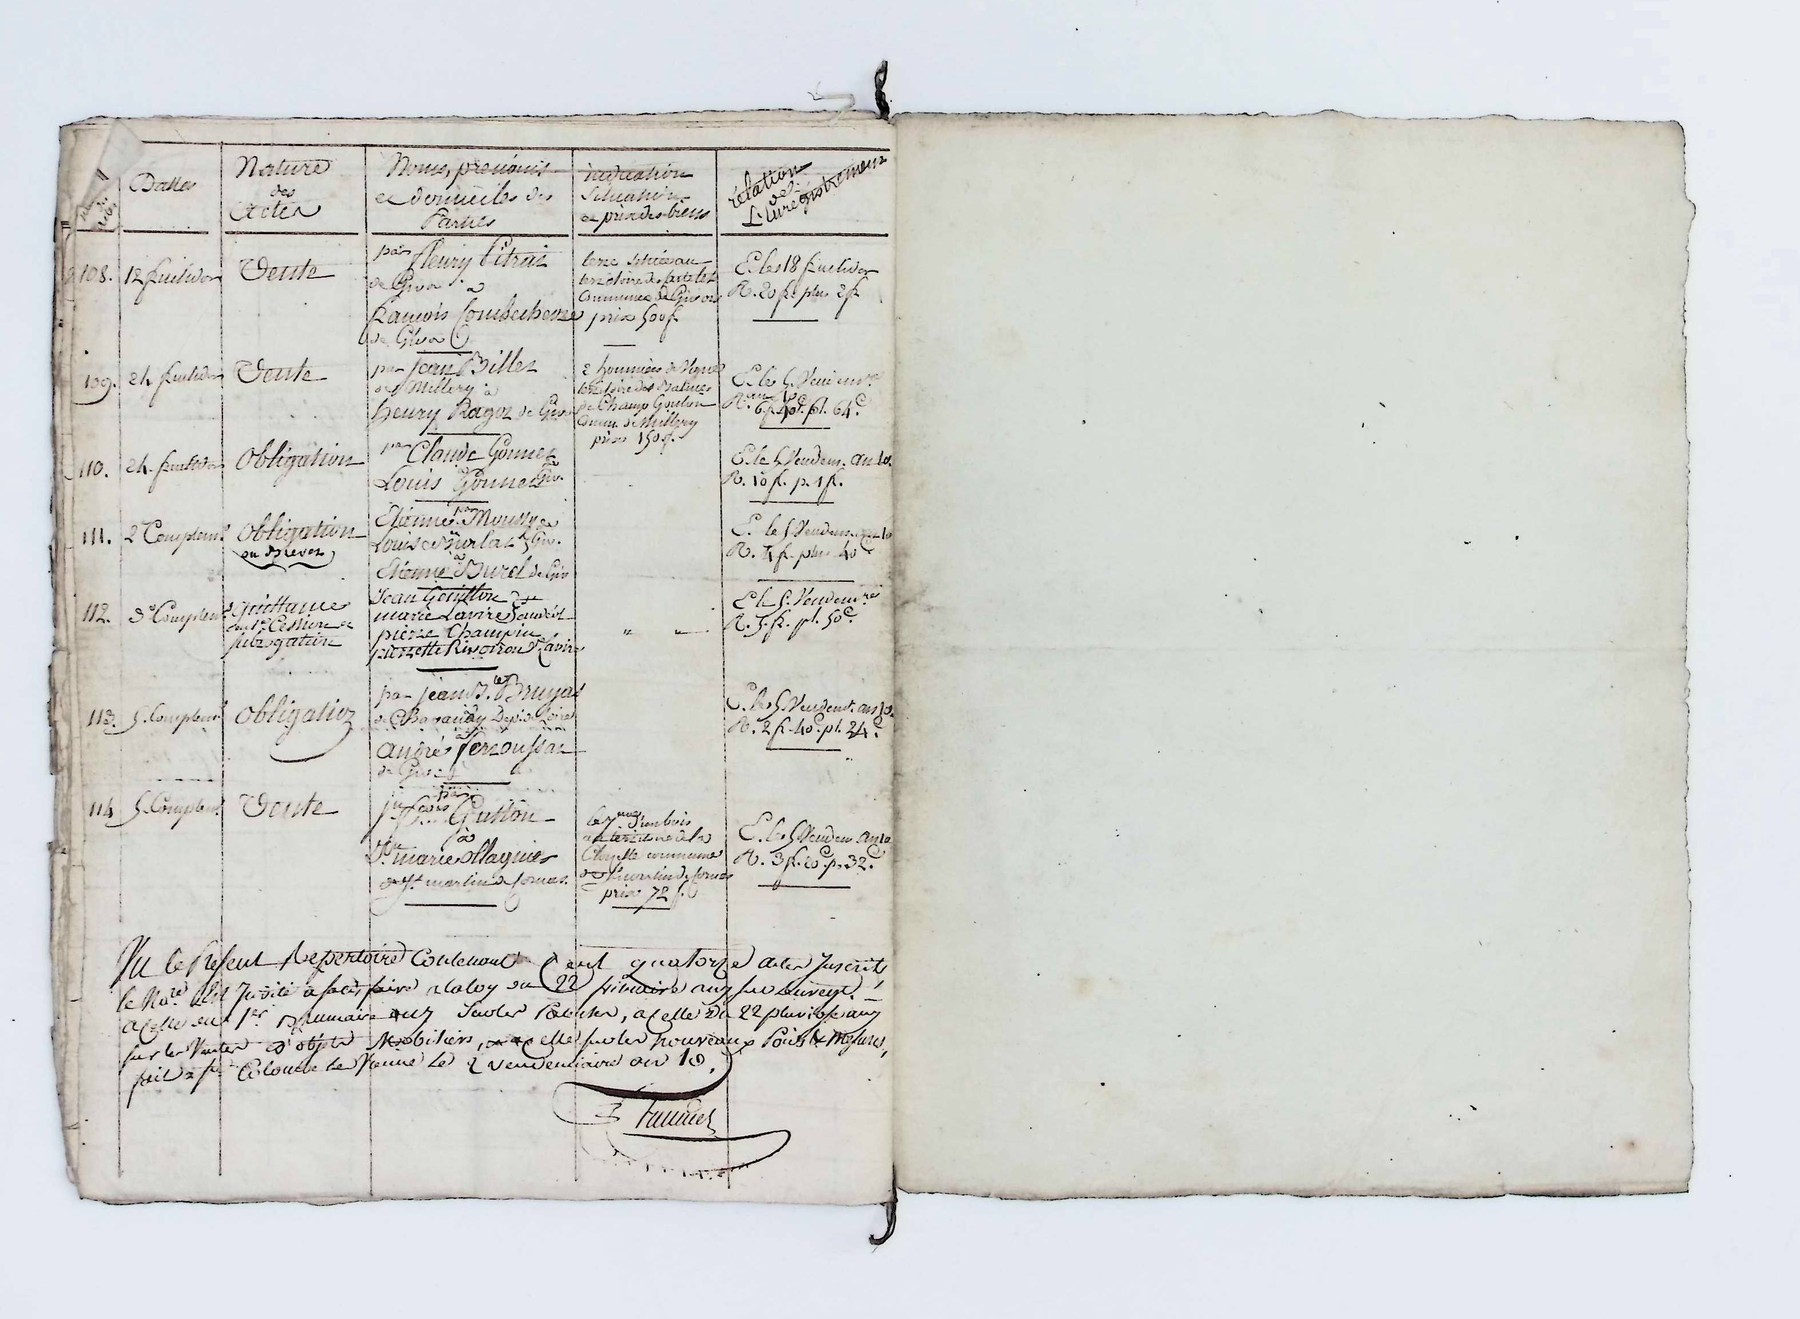 Dattes
Nature
des
Actes
Noms, prenoms
et domiciles des
Parties
indication
Situation
et prix des biens
relation
de
L'Enregistrement
108. 12 fructidor Vente
par fleury
de Givor à
françois Combechevre
de Givor
terre située au
territoire des
Commune de Givors
prix 500 f.
E. le 18 fructidor
R. 20 f. plus 2 f.
109. 24 fructidor Vente
par Jean Billet
de Millery à
henry Ragot de Givor
2 hommées de Vigne
territoire des Balmes
de Champ Goulon
Comm. de Millery
prix 150 f.
E. le 5 Vendem.re
an 10
R. 6 f. 40 c. pl. 64 c.
110. 24 fructidor Obligation
par Claude Gonnet
à
Louis Gonnet de Giv.
E. le 5 Vendem. an 10.
R. 10 f. p. 1 f.
111. 2e Complem.re Obligation
en Brevet
par
Etienne Moussy et
Louise Burlat de Giv.
à
Etienne Burel de Giv
E. le 5 Vendem. an 10
R. 4 f. plus 40 c
112. 3e Complem.re quittance
Cession et
subrogation
Jean Gouillon et
marie Lavire
pierre Champin
pierrette Rivoiron Ve Lavire
" "
E le 5 Vendem.re
R. 5 f. pl. 50 c.
113. 5 Complem.re Obligation
par Jean B.te Bruyas
de Dep.t de Loire
à
andré
de Givor
E. le 5 Vendem.re an 10.
R. 2 f. 40 c. pl. 24 c.
114 5 Complem.re Vente
par
Guitton
à
V.e marie Magnin
de St martin de Cornas.
bois
au territoire de la
Chapelle commune
de St martin de Cornas
prix 72 f.
E. le 5 Vendem. an 10
R. 3 f. 20 c. p. 32 c.
Vu le Present Repertoire Contenant Cent quatorze actes Inscrits
le No.re est Invité a satisfaire a la loy du 22 frimaire an 7 sur l'enregt.
a celle du 1er Brumaire an 7 sur les Patentes, a celle du 22 pluviose an 7
sur les Ventes d'objets Mobiliers, et a celle sur les nouveaux Poids & Mesures,
fait a Ste Colombe les Vienne le 2 vendemiaire an 10.